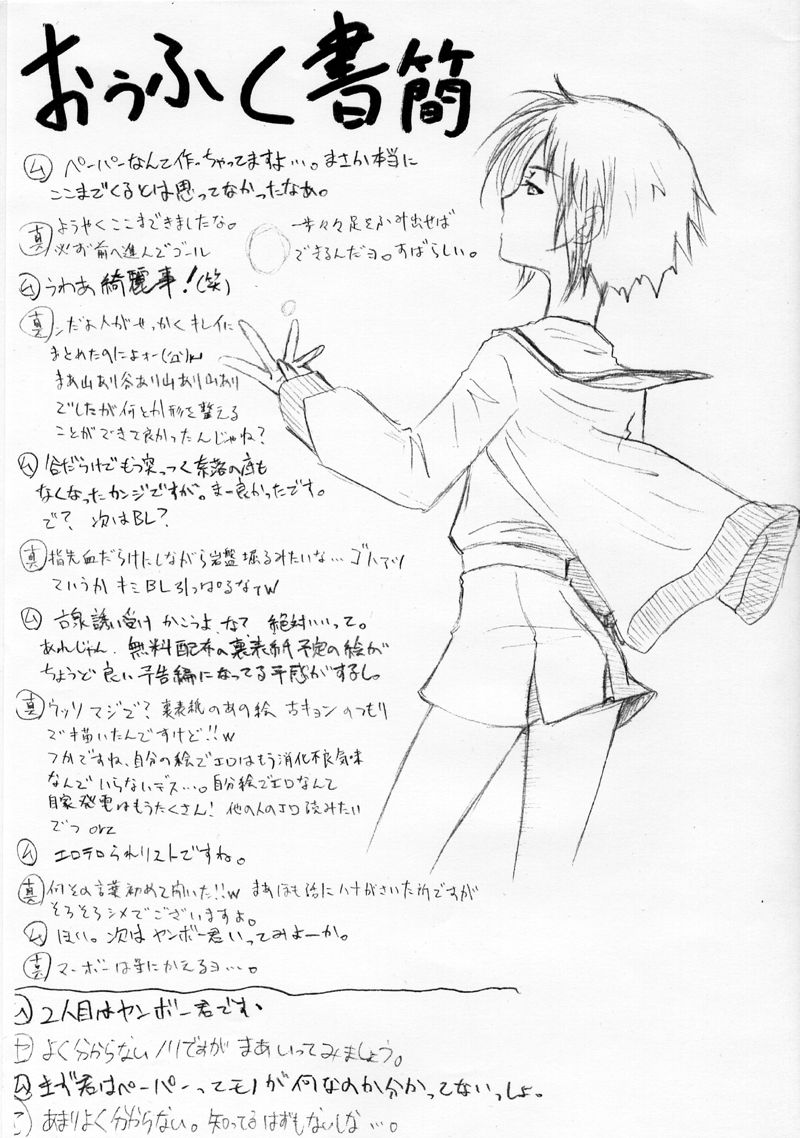 おうふく書簡
ム ペーパーなんて作っちゃってますよ…。まさか本当に
ここまでくるとは思ってなかったなぁ。
真 ようやくここまできましたな。 一歩々々足をふみ出せば
必ず前へ進んでゴール できるんだヨ。すばらしい。
ム うわあ綺麗事!(笑)
真 人がせっかくキレイに
まとめたのによォー
まあ山あり谷あり山あり山あり
でしたが何とか形を整える
ことができて良かったんじゃね?
ム 谷だらけでもう突っつく奈落の底も
なくなったカンジですが。まー良かったです。
で? 次はBL?
真 指先血だらけにしながら岩盤掘るみたいな…
ていうか キミBL引っぱるなァw
ム 古泉誘い受け かこうよ、なて 絶対いいって。
あれじゃん、無料配布の裏表紙予定の絵が
ちょうど良い予告編になってる予感がするし。
真 ウッソ マジで? 裏表紙のあの絵 古キョン のつもり
で描いたんですけど!!w
つかですね、自分の絵でエロはもう消化不良気味
なんでいらないデス…。自分絵でエロなんて
自家発電はもうたくさん! 他の人のエロ読みたい
でつ orz
ム エロテロられリストですね。
真 何その言葉初めて聞いた!!w まあほも話にハナがさいた所ですが
そろそろシメでございますよ。
ム ほい。次はヤンボー君いってみよーか。
真 マーボーは星にかえるヨ…。
ム 2人目はヤンボー君です、
よく分からないノリですが まあいってみましょう。
ム まず君はペーパーってモノが何なのか分かってないっしょ。
あまりよく分からない。知ってるはずもないしな…。